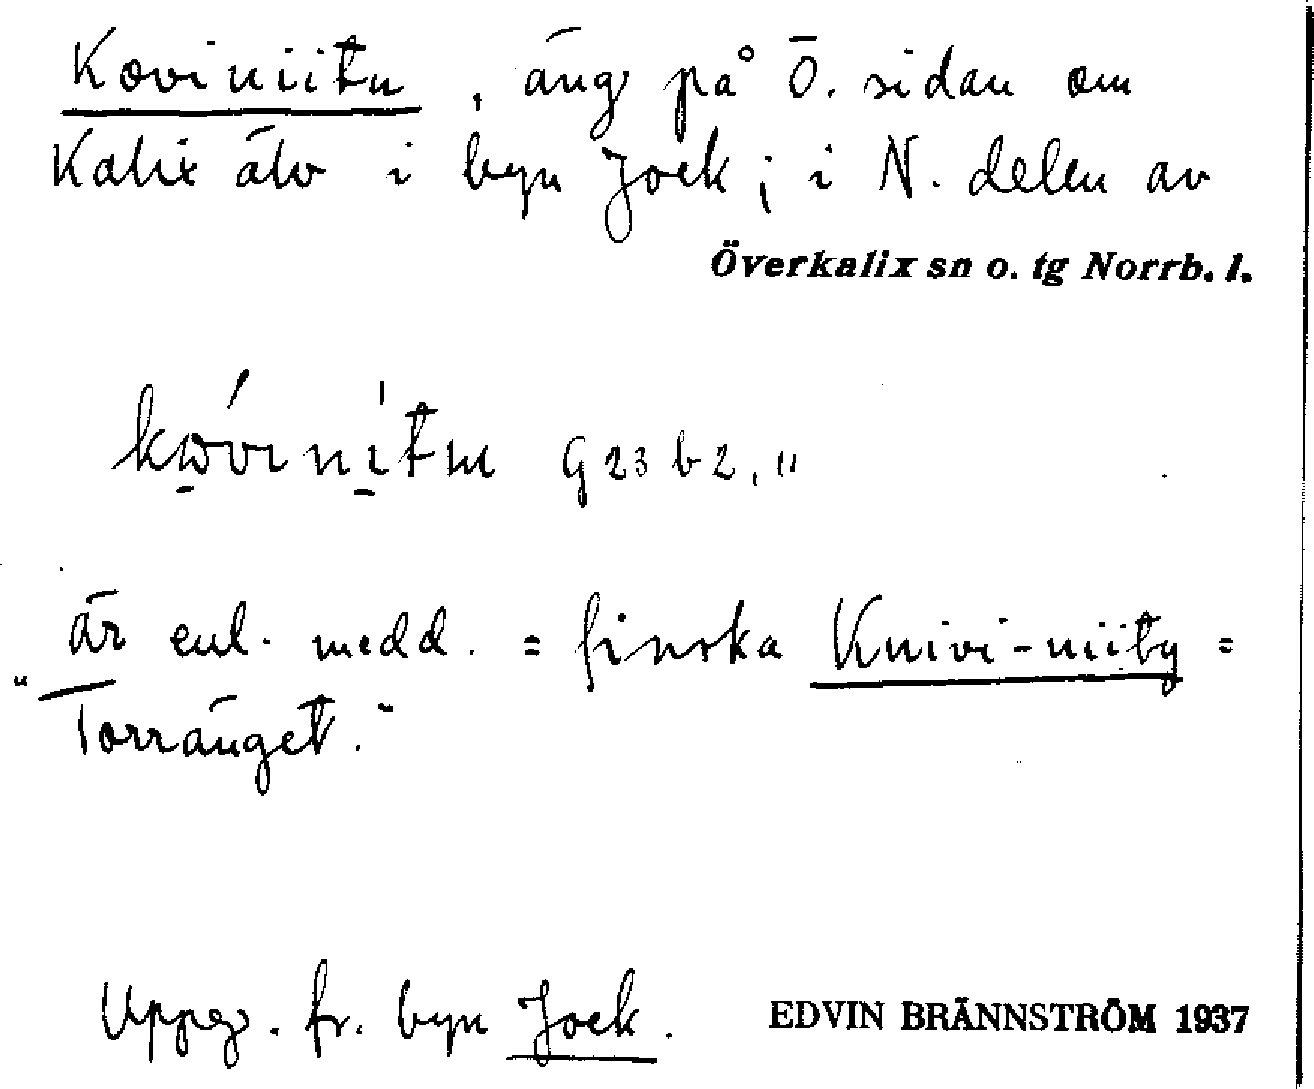 Koviniitu, äng på Ö. sidan om
Kalix älv i byn Jock; i N. delen av
Överkalix sn o. tg Norrb. l.
kòvinitu G 23 b 2, "
är enl. medd. = finska Knivi-niity =
"Torränget."
Uppg. fr. byn Jock.
EDVIN BRÄNNSTRÖM 1937